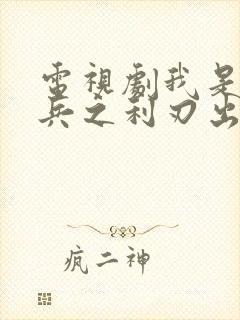 電視劇我是
兵之利刃出
疯二神